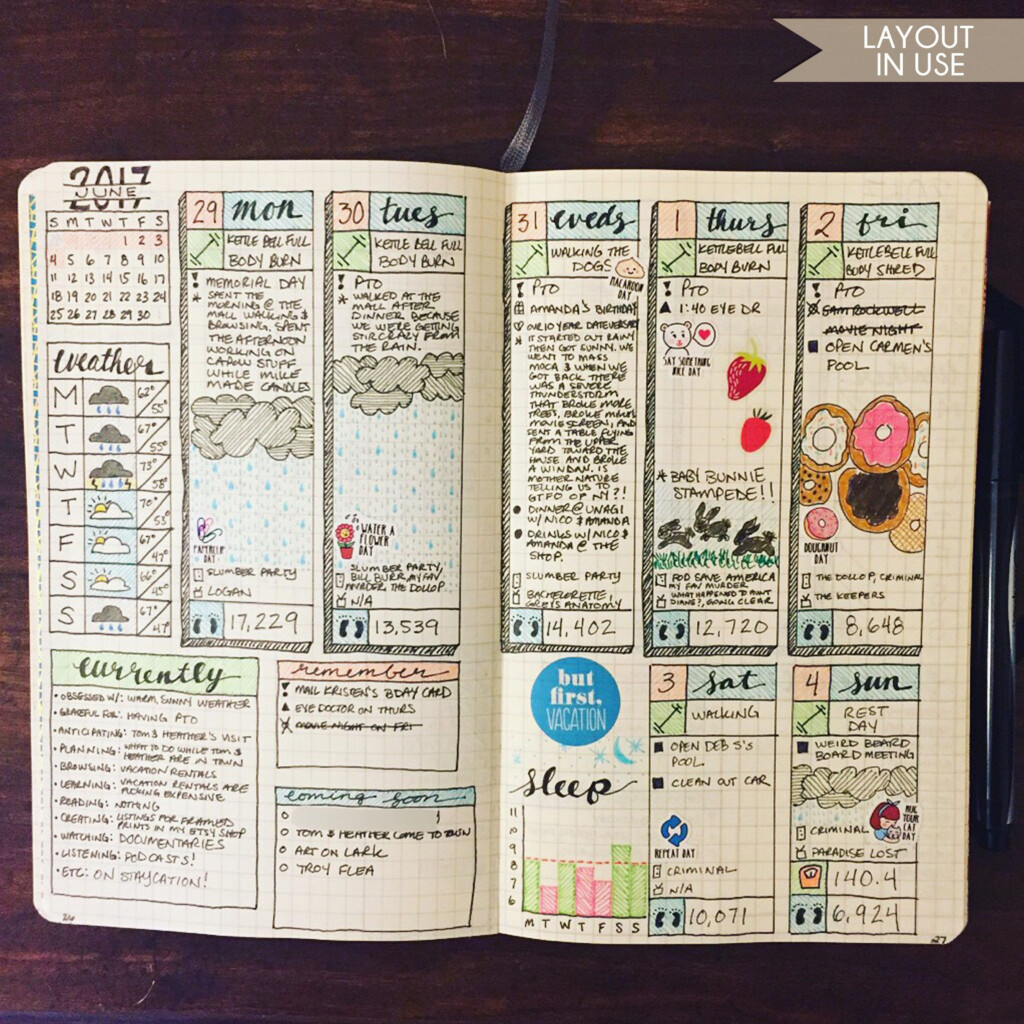 LAYOUT
IN USE
2017
JUNE
S M T W T F S
1 2 3
4 5 6 7 8 9 10
11 12 13 14 15 16 17
18 19 20 21 22 23 24
25 26 27 28 29 30
weathers
M 62° 55°
T 67° 55°
W 73° 58°
T 70° 53°
F 67° 47°
S 66° 45°
S 67° 47°
29 mon
KETTLE BELL FULL
BODY BURN
! MEMORIAL DAY
* SPENT THE
MORNING @ THE
MALL WALKING &
BROWSING. SPENT
THE AFTERNOON
WORKING ON
STUFF
WHILE MIKE
MADE CANDLES
PAPERCLIP
DAY
SLUMBER PARTY
LOGAN
17,229
30 tues
KETTLE BELL FULL
BODY BURN
! PTO
* WALKED AT THE
MALL AFTER
DINNER BECAUSE
WE WERE GETTING
STIRCRAZY FROM
THE RAIN.
WATER A
FLOWER
DAY
SLUMBER PARTY,
BILL BURR, MY FAV
MURDER, THE DOLLOP
N/A
13,539
31 weds
WALKING THE
DOGS
MACAROON
DAY
! PTO
AMANDA'S BIRTHDAY
OUR 10 YEAR DATEVERSARY
* IT STARTED OUT RAINY
THEN GOT SUNNY. WE
WENT TO MASS
MOCA & WHEN WE
GOT BACK THERE
WAS A SEVERE
THUNDERSTORM
THAT BROKE MORE
TREES, BROKE MIKE'S
MOVIE SCREEN, AND
SENT A TABLE FLYING
FROM THE UPPER
YARD TOWARD THE
HOUSE AND BROKE
A WINDOW. IS
MOTHER NATURE
TELLING US TO
GTFO OF NY?!
• DINNER @ UNAGI
W/ NICO & AMANDA
• DRINKS W/ NICO &
AMANDA @ THE
SHOP.
SLUMBER PARTY
BACHELORETTE,
GREYS ANATOMY
14,402
1 thurs
KETTLEBELL FULL
BODY BURN
! PTO
▲ 1:40 EYE DR
SAY SOMETHING
NICE DAY
* BABY BUNNIE
STAMPEDE!!
POD SAVE AMERICA
MY FAV MURDER
WHAT HAPPENED TO AUNT
DIANE?, GOING CLEAR
12,720
2 fri
KETTLEBELL FULL
BODY SHRED
! PTO
SAM ROCKWELL
MOVIE NIGHT
■ OPEN CARMEN'S
POOL
DOUGHNUT
DAY
THE DOLLOP, CRIMINAL
THE KEEPERS
8,648
currently
• OBSESSED W/: WARM, SUNNY WEATHER
• GRATEFUL FOR: HAVING PTO
• ANTICIPATING: TOM & HEATHER'S VISIT
• PLANNING: WHAT TO DO WHILE TOM &
HEATHER ARE IN TOWN
• BROWSING: VACATION RENTALS
• LEARNING: VACATION RENTALS ARE
FUCKING EXPENSIVE
• READING: NOTHING
• CREATING: LISTINGS FOR FRAMED
PRINTS IN MY ETSY SHOP
• WATCHING: DOCUMENTARIES
• LISTENING: PODCASTS!
• ETC: ON STAYCATION!
26
remember
! MAIL KRISTEN'S BDAY CARD
▲ EYE DOCTOR ON THURS
X MOVIE NIGHT ON FRI
coming soon
O TOM & HEATHER COME TO TOWN
O ART ON LARK
O TROY FLEA
but
first,
VACATION
sleep
11
10
9
8
7
6
M T W T F S S
3 sat
WALKING
■ OPEN DEB S's
POOL
■ CLEAN OUT CAR
REPEAT DAY
CRIMINAL
N/A
10,071
4 sun
REST
DAY
■ WEIRD BEARD
BOARD MEETING
HUG
YOUR
CAT
DAY
CRIMINAL
PARADISE LOST
140.4
6,924
27